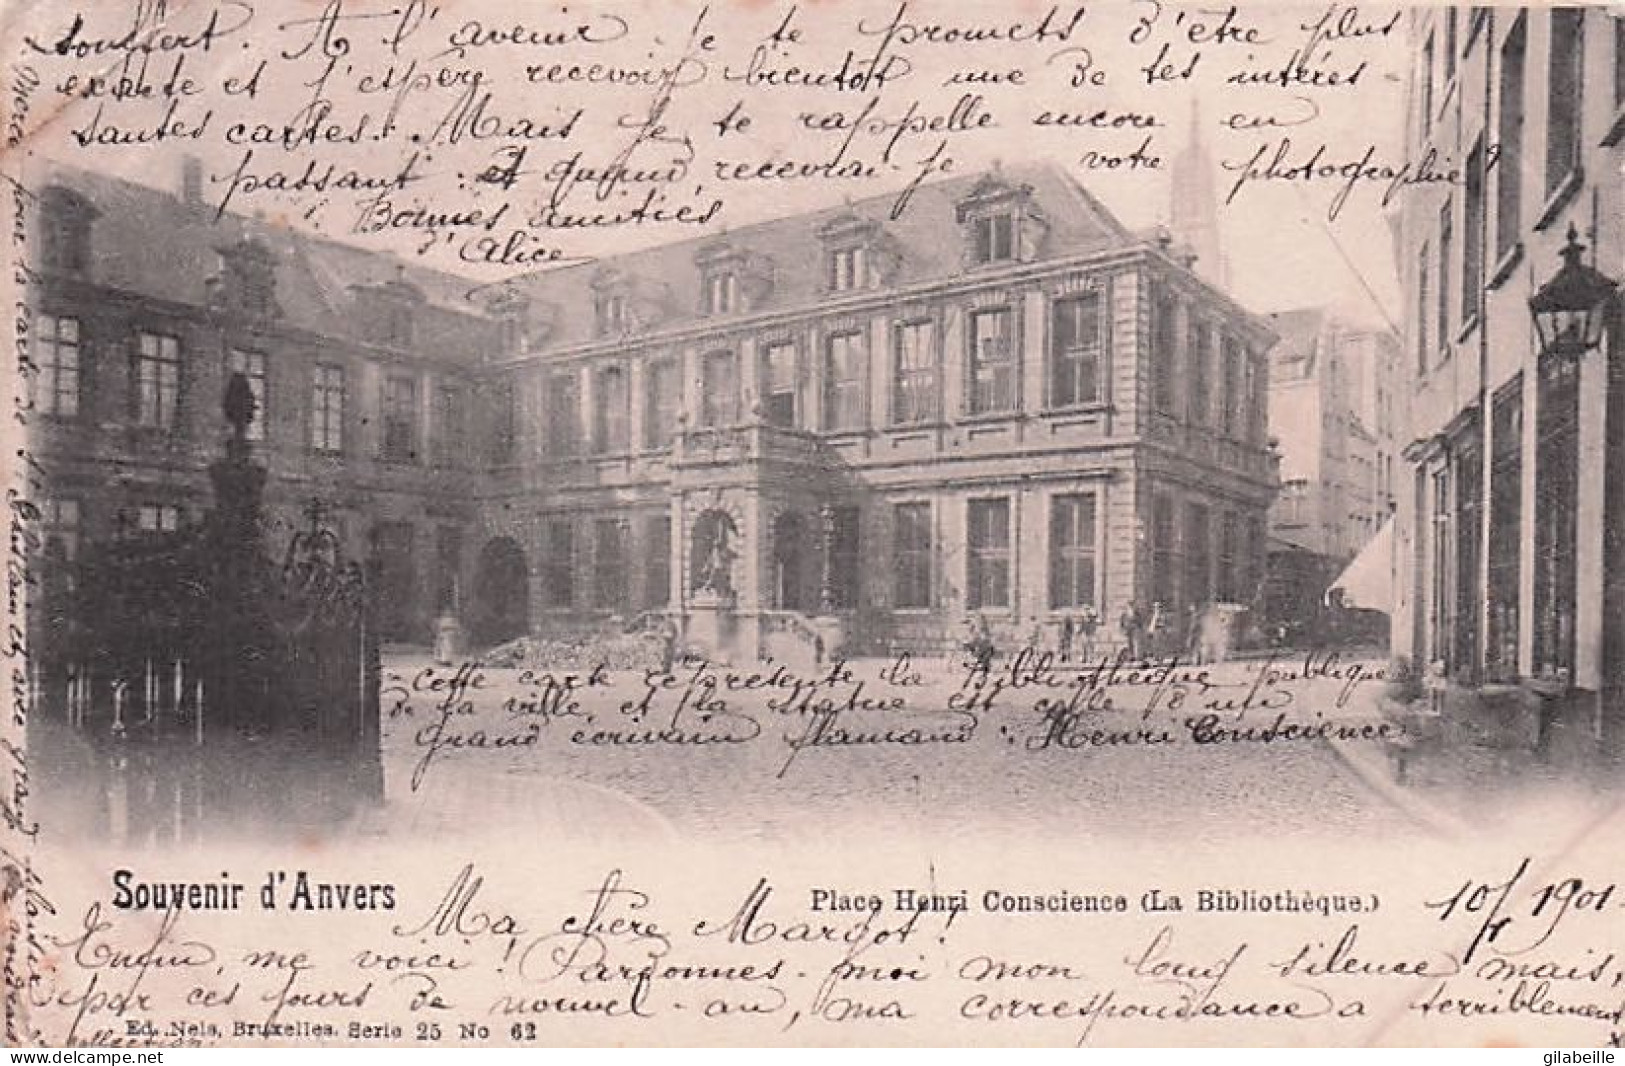 souffert. A l'avenir je te promets d'être plus
exacte et j'espère recevoir bientôt une de tes intéres-
santes cartes. Mais je te rappelle encore en
passant : et quand recevrai-je votre photographie?
Bonnes amitiés
d'Alice
- Cette carte représente la Bibliothèque publique
de la ville, et la statue est celle d'un
grand écrivain flamand : Henri Conscience
Souvenir d'Anvers
Place Henri Conscience (La Bibliothèque.)
10/1 1901.
Ma chère Margot!
Enfin, me voici! Pardonnes-moi mon long silence mais,
par ces jours de nouvel-an, ma correspondance a terriblement
Ed. Nels, Bruxelles. Serie 25 No 62
Merci pour la carte de St Ghislain et avec grand plaisir
collection.
gilabeille